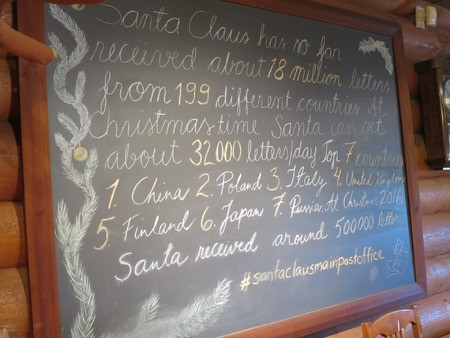 Santa Claus has so far
received about 18 million letters
from 199 different countries. At
Christmastime Santa can get
about 32000 letters/day. Top 7 countries
1. China 2. Poland 3. Italy 4. United Kingdom
5. Finland 6. Japan 7. Russia. At Christmas 2016
Santa received around 500000 letters
#santaclausmainpostoffice